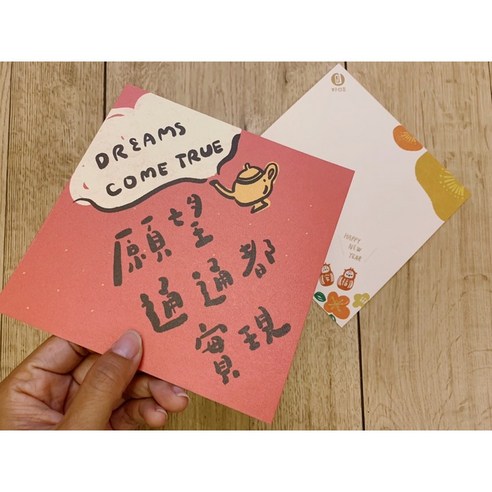 DREAMS
COME TRUE
願望
通通都
實現
HAPPY
NEW
YEAR